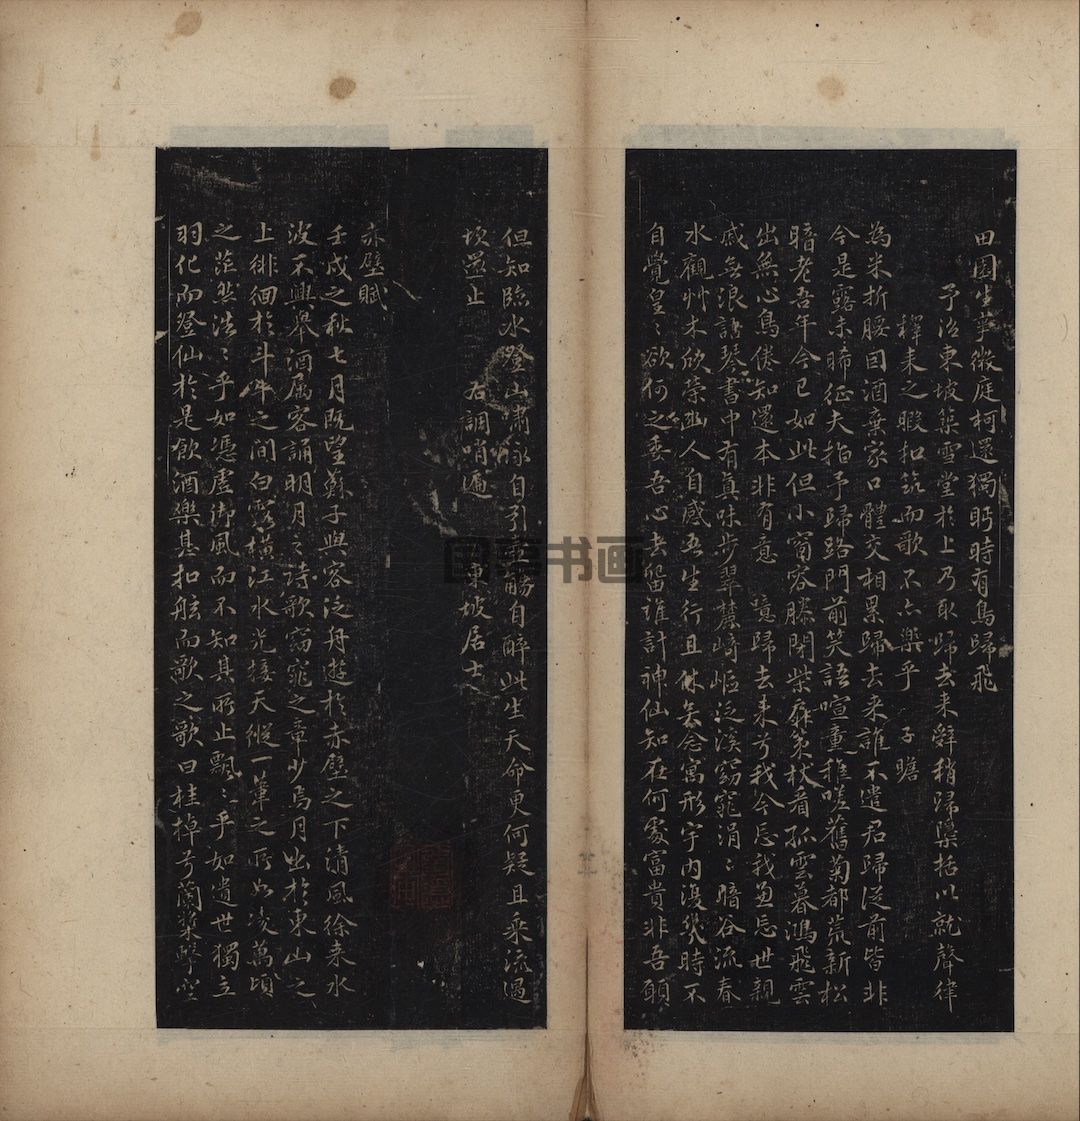 田園生事微庭柯還獨眄時有鳥歸飛
予治東坡築雪堂於上乃取歸去来辭稍歸檃栝以就聲律
釋耒之暇扣筑而歌不亦樂乎 子瞻
為米折腰因酒棄家口體交相累歸去来誰不遣君歸從前皆非
今是露未晞征夫指予歸路門前笑語喧童稚嗟舊菊都荒新松
暗老吾年今已如此但小窗容膝閉柴扉策杖看孤雲暮鴻飛雲
出無心鳥倦知還本非有意 噫歸去来兮我今忘我兼忘世親
戚無浪語琴書中有真味步翠麓崎嶇泛溪窈窕涓〻暗谷流春
水觀艸木欣榮幽人自感吾生行且休矣念寓形宇内復幾時不
自覺皇〻欲何之委吾心去留誰計神仙知在何處富貴非吾願
但知臨水登山肅詠自引壺觴自醉此生天命更何疑且乗流遇
坎還止
右調哨遍 東坡居士
赤壁賦
壬戌之秋七月既望蘇子與客泛舟遊於赤壁之下清風徐来水
波不興舉酒屬客誦明月之詩歌窈窕之章少焉月出於東山之
上徘徊於斗牛之間白露橫江水光接天縱一葦之所如淩萬頃
之茫然浩〻乎如憑虛御風而不知其所止飄〻乎如遺世獨立
羽化而登仙於是飲酒樂甚扣舷而歌之歌曰桂棹兮蘭槳擊空
国萃书画